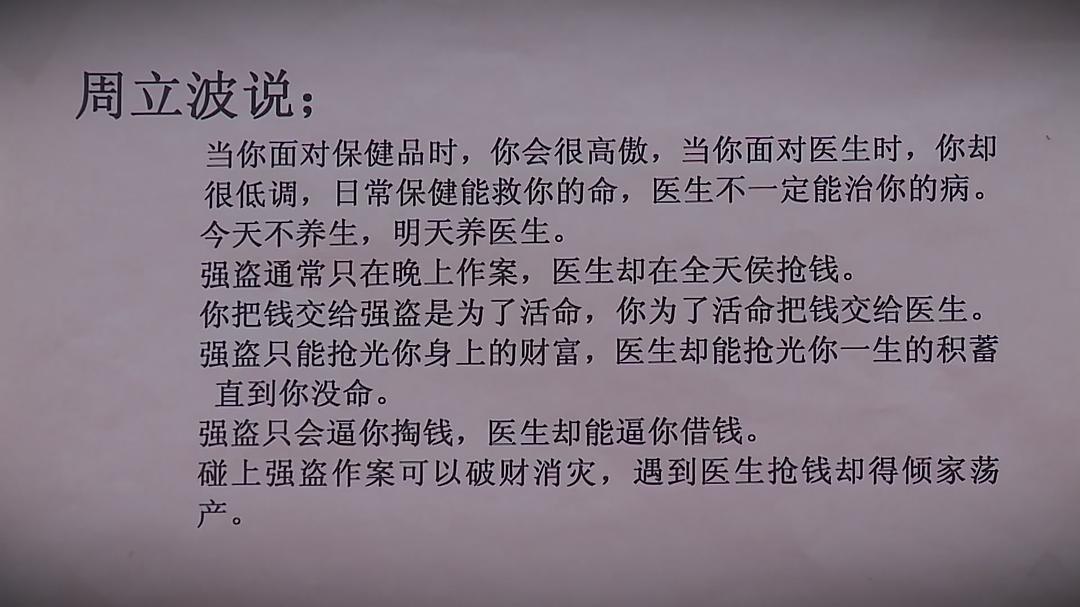 周立波说；
当你面对保健品时，你会很高傲，当你面对医生时，你却
很低调，日常保健能救你的命，医生不一定能治你的病。
今天不养生，明天养医生。
强盗通常只在晚上作案，医生却在全天侯抢钱。
你把钱交给强盗是为了活命，你为了活命把钱交给医生。
强盗只能抢光你身上的财富，医生却能抢光你一生的积蓄
直到你没命。
强盗只会逼你掏钱，医生却能逼你借钱。
碰上强盗作案可以破财消灾，遇到医生抢钱却得倾家荡
产。